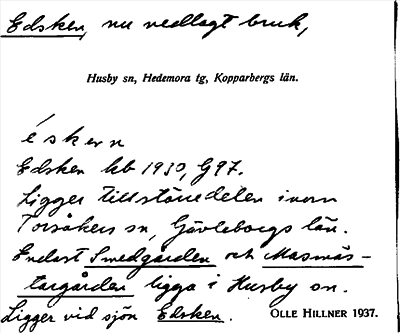 Edsken, nu nedlagt bruk,
Husby sn, Hedemora tg, Kopparbergs län.
éskern
Edsken kb 1930, G97.
Ligger till större delen inom
Torsåkers sn, Gävleborgs län.
Endast Smedgården och Masmäs-
targården ligga i Husby sn.
Ligger vid sjön Edsken. OLLE HILLNER 1937.